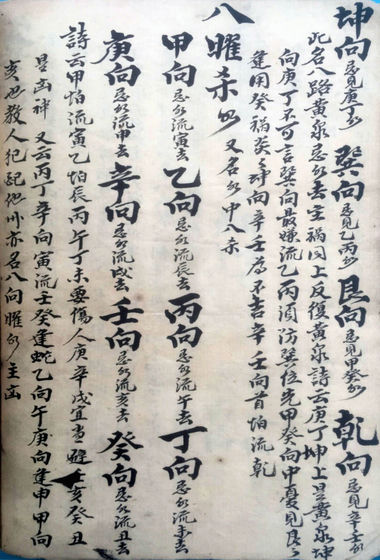 坤向忌見庚丁水 巽向忌見乙丙水 艮向忌見甲癸水 乾向忌見辛壬水
此名八路黄泉忌水去主禍同上反復黄泉詩云庚丁坤上是黄泉坤
向庚丁不可言巽向最嫌流乙丙須防巽位先甲癸向中憂見艮
逢用癸禍癸乾向辛壬為不吉辛壬向首怕流乾
八曜杀水 又名水中八杀
甲向忌水流寅去 乙向忌水流辰去 丙向忌水流午去 丁向忌水流未去
庚向忌水流申去 辛向忌水流戌去 壬向忌水流亥去 癸向忌水流丑去
詩云甲怕流寅乙怕辰丙午丁未要傷人庚辛戌宜当避壬亥癸丑
是凶神 又云丙丁辛向寅流壬癸逢蛇乙向午庚向逢申甲向
亥也教人犯記他 亦名八向曜水主凶